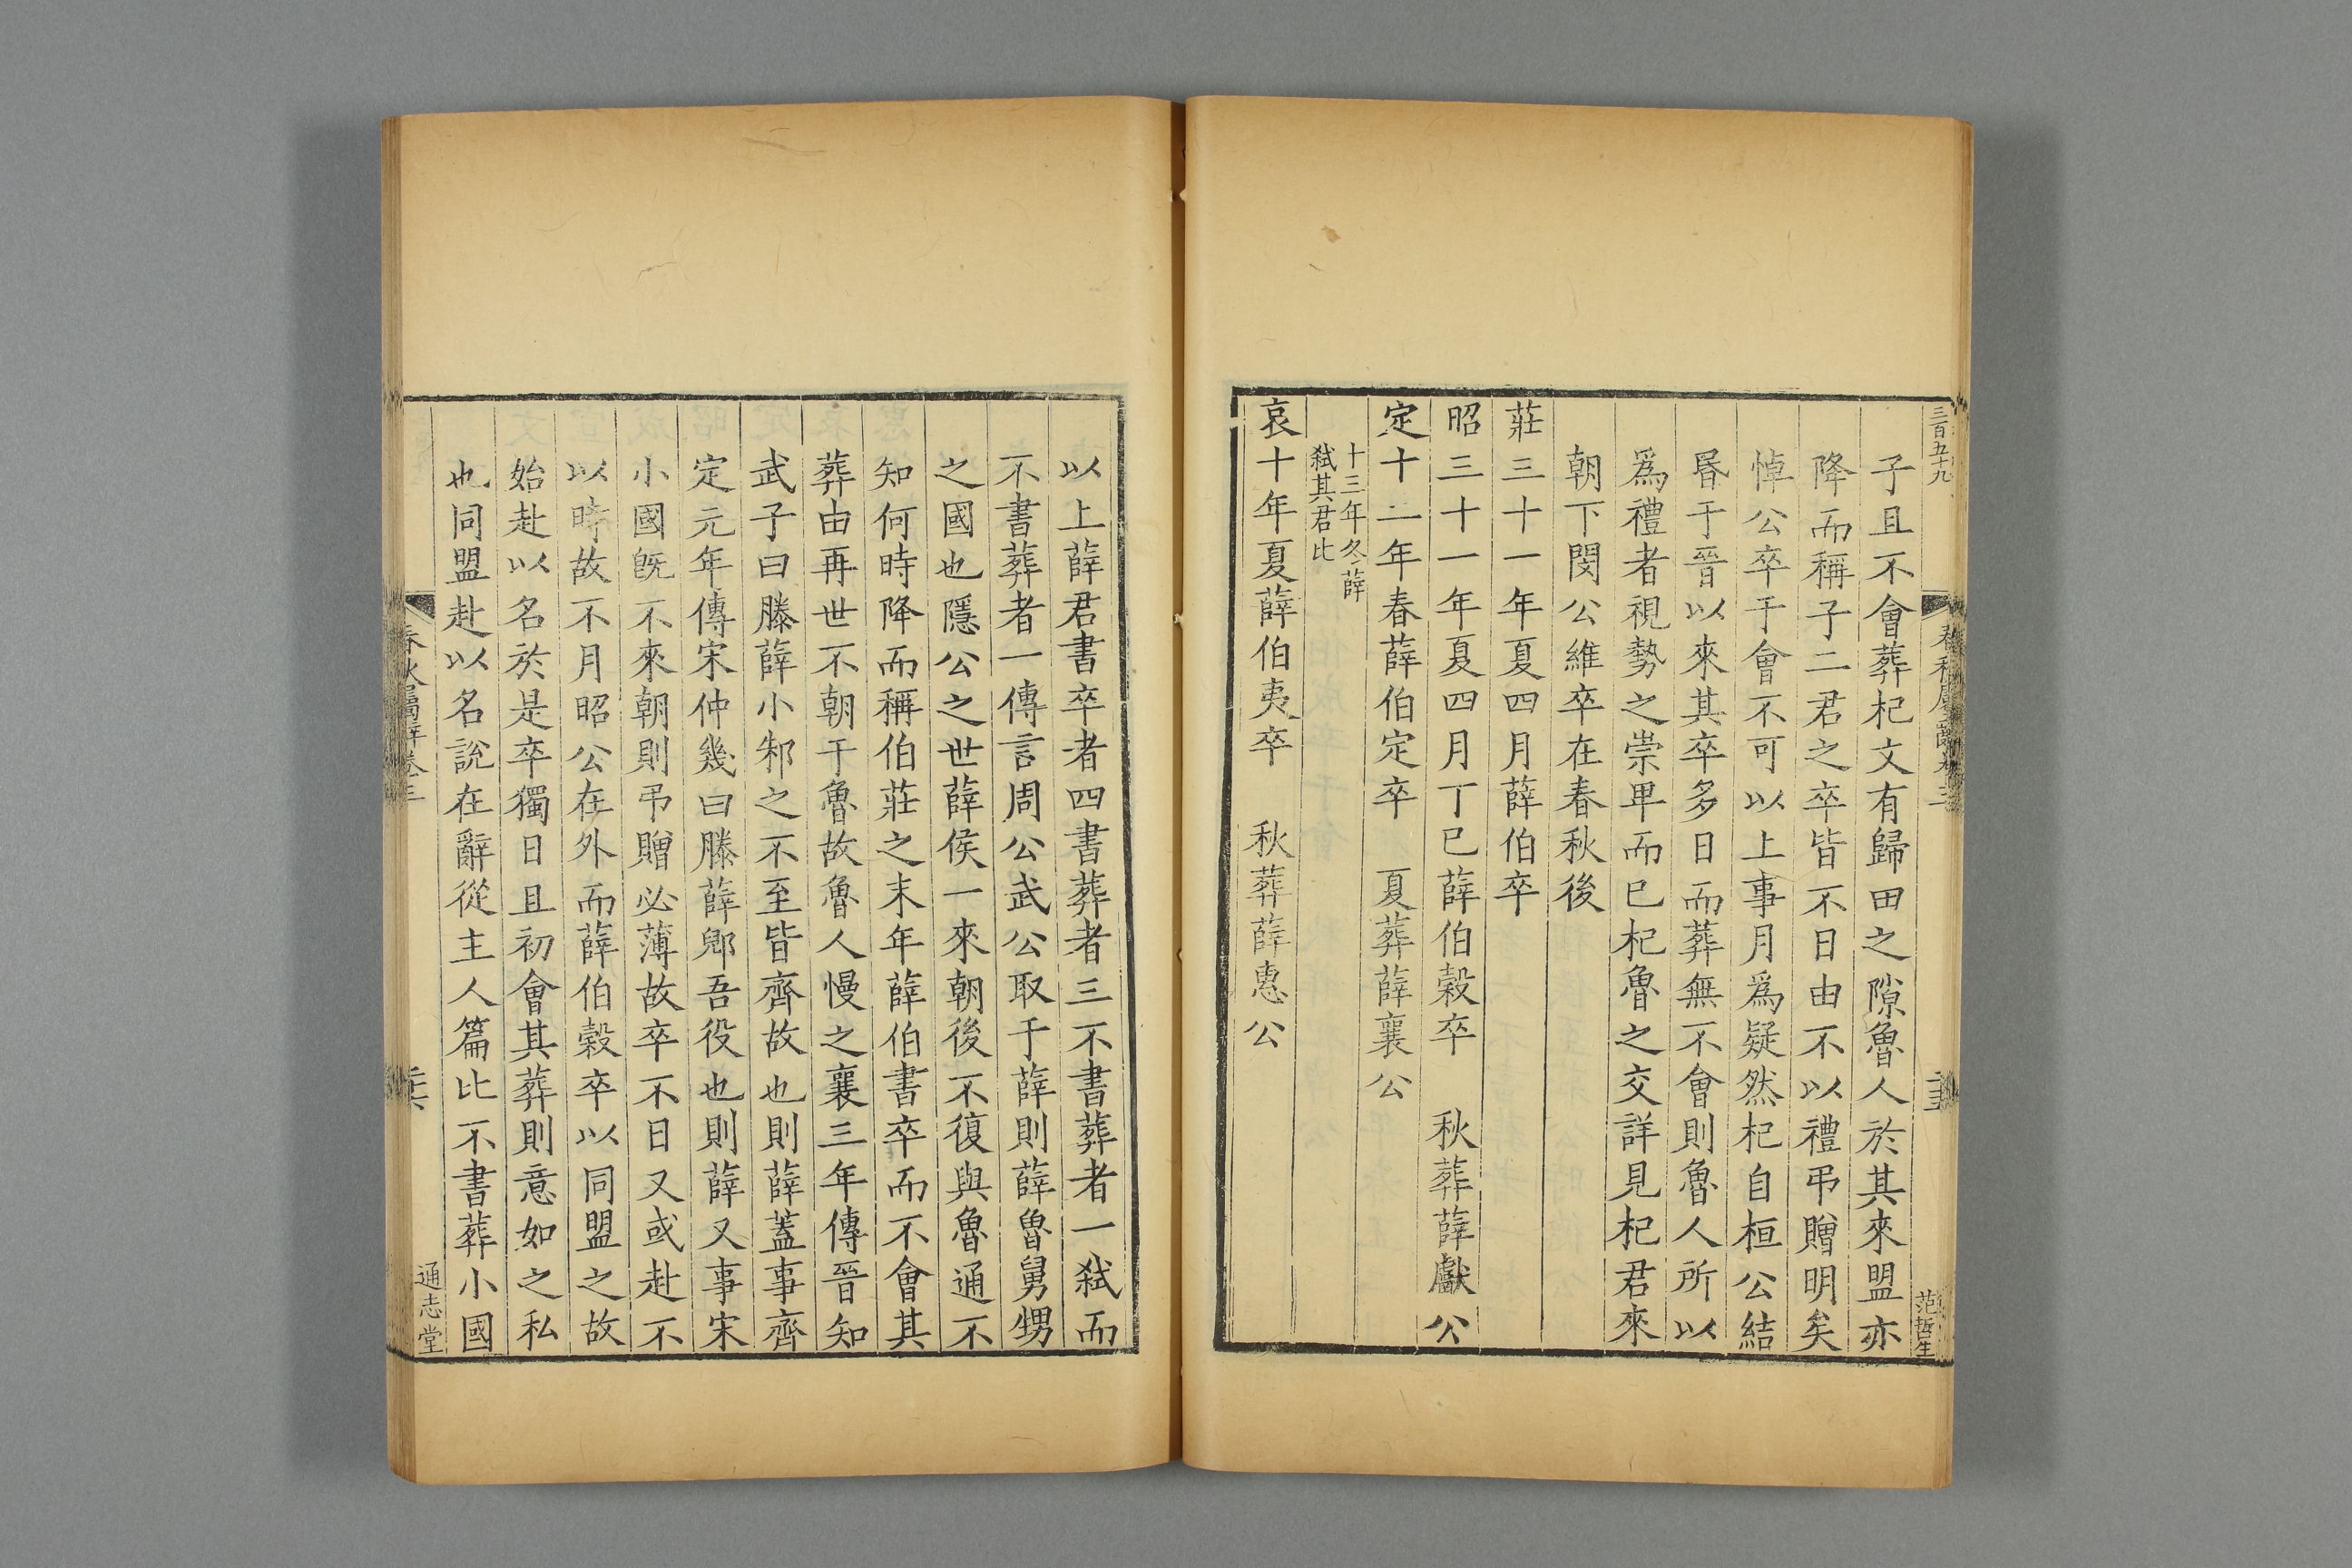 三百五十九
春秋屬辭卷三
范哲生
子且不會葬杞文有歸田之隙魯人於其來盟亦
降而稱子二君之卒皆不日由不以禮弔贈明矣
悼公卒于會不可以上事月爲疑然杞自桓公結
昏于晉以來其卒多日而葬無不會則魯人所以
爲禮者視勢之崇卑而已杞魯之交詳見杞君來
朝下閔公維卒在春秋後
莊三十一年夏四月薛伯卒
昭三十一年夏四月丁巳薛伯穀卒 秋葬薛獻公
定十二年春薛伯定卒 夏葬薛襄公
十三年冬薛
弑其君比
哀十年夏薛伯夷卒 秋葬薛惠公
以上薛君書卒者四書葬者三不書葬者一弑而
不書葬者一傳言周公武公取于薛則薛魯舅甥
之國也隱公之世薛侯一來朝後不復與魯通不
知何時降而稱伯莊之末年薛伯書卒而不會其
葬由再世不朝于魯故魯人慢之襄三年傳晉知
武子曰滕薛小邾之不至皆齊故也則薛蓋事齊
定元年傳宋仲幾曰滕薛郳吾役也則薛又事宋
小國旣不來朝則弔贈必薄故卒不日又或赴不
以時故不月昭公在外而薛伯穀卒以同盟之故
始赴以名於是卒獨日且初會其葬則意如之私
也同盟赴以名說在辭從主人篇比不書葬小國
春秋屬辭卷三
通志堂